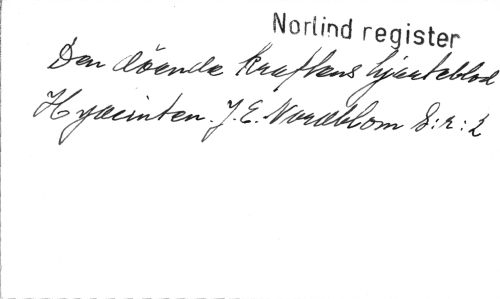 Norlind register
Den döende kraftens hjerteblod
Hyacinten. J. E. Nordblom S:r: 2